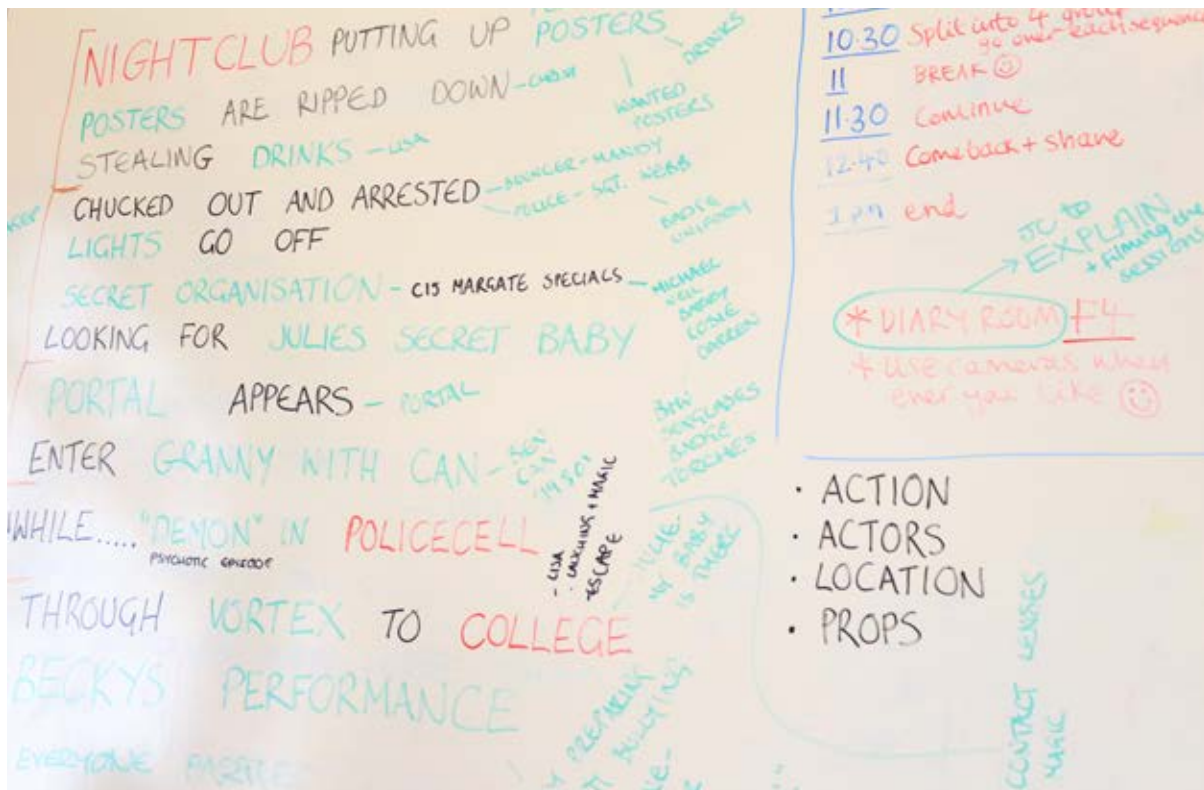 NIGHTCLUB PUTTING UP POSTERS
DRINKS
POSTERS ARE RIPPED DOWN -
WANTED POSTERS
STEALING DRINKS - LISA
CHUCKED OUT AND ARRESTED - BOUNCER - MANDY
- POLICE - SGT. WEBB
BADGE
UNIFORM
LIGHTS GO OFF
SECRET ORGANISATION - C15 MARGATE SPECIALS - MICHAEL
NEIL
BARRY
ROSIE
DARREN
LOOKING FOR JULIES SECRET BABY
PORTAL APPEARS - PORTAL
BMW
SUNGLASSES
BADGE
TORCHES
ENTER GRANNY WITH CAN - BEV
CAN
WHILE..... "DEMON" IN POLICECELL
PSYCHOTIC EPISODE
- LISA
- LAUGHING + MAGIC
- ESCAPE
JULIE.
MY BABY
IS THERE
THROUGH VORTEX TO COLLEGE
BECKYS PERFORMANCE
EVERYONE
10.30 Split into 4 group
go over each sequence
11 BREAK
11.30 Continue
12.40 Come back + share
1 pm end
JC to
EXPLAIN
+ filming the
sessions
* DIARY ROOM F4
* Use cameras when
ever you like
· ACTION
· ACTORS
· LOCATION
· PROPS
CONTACT LENSES
MAGIC